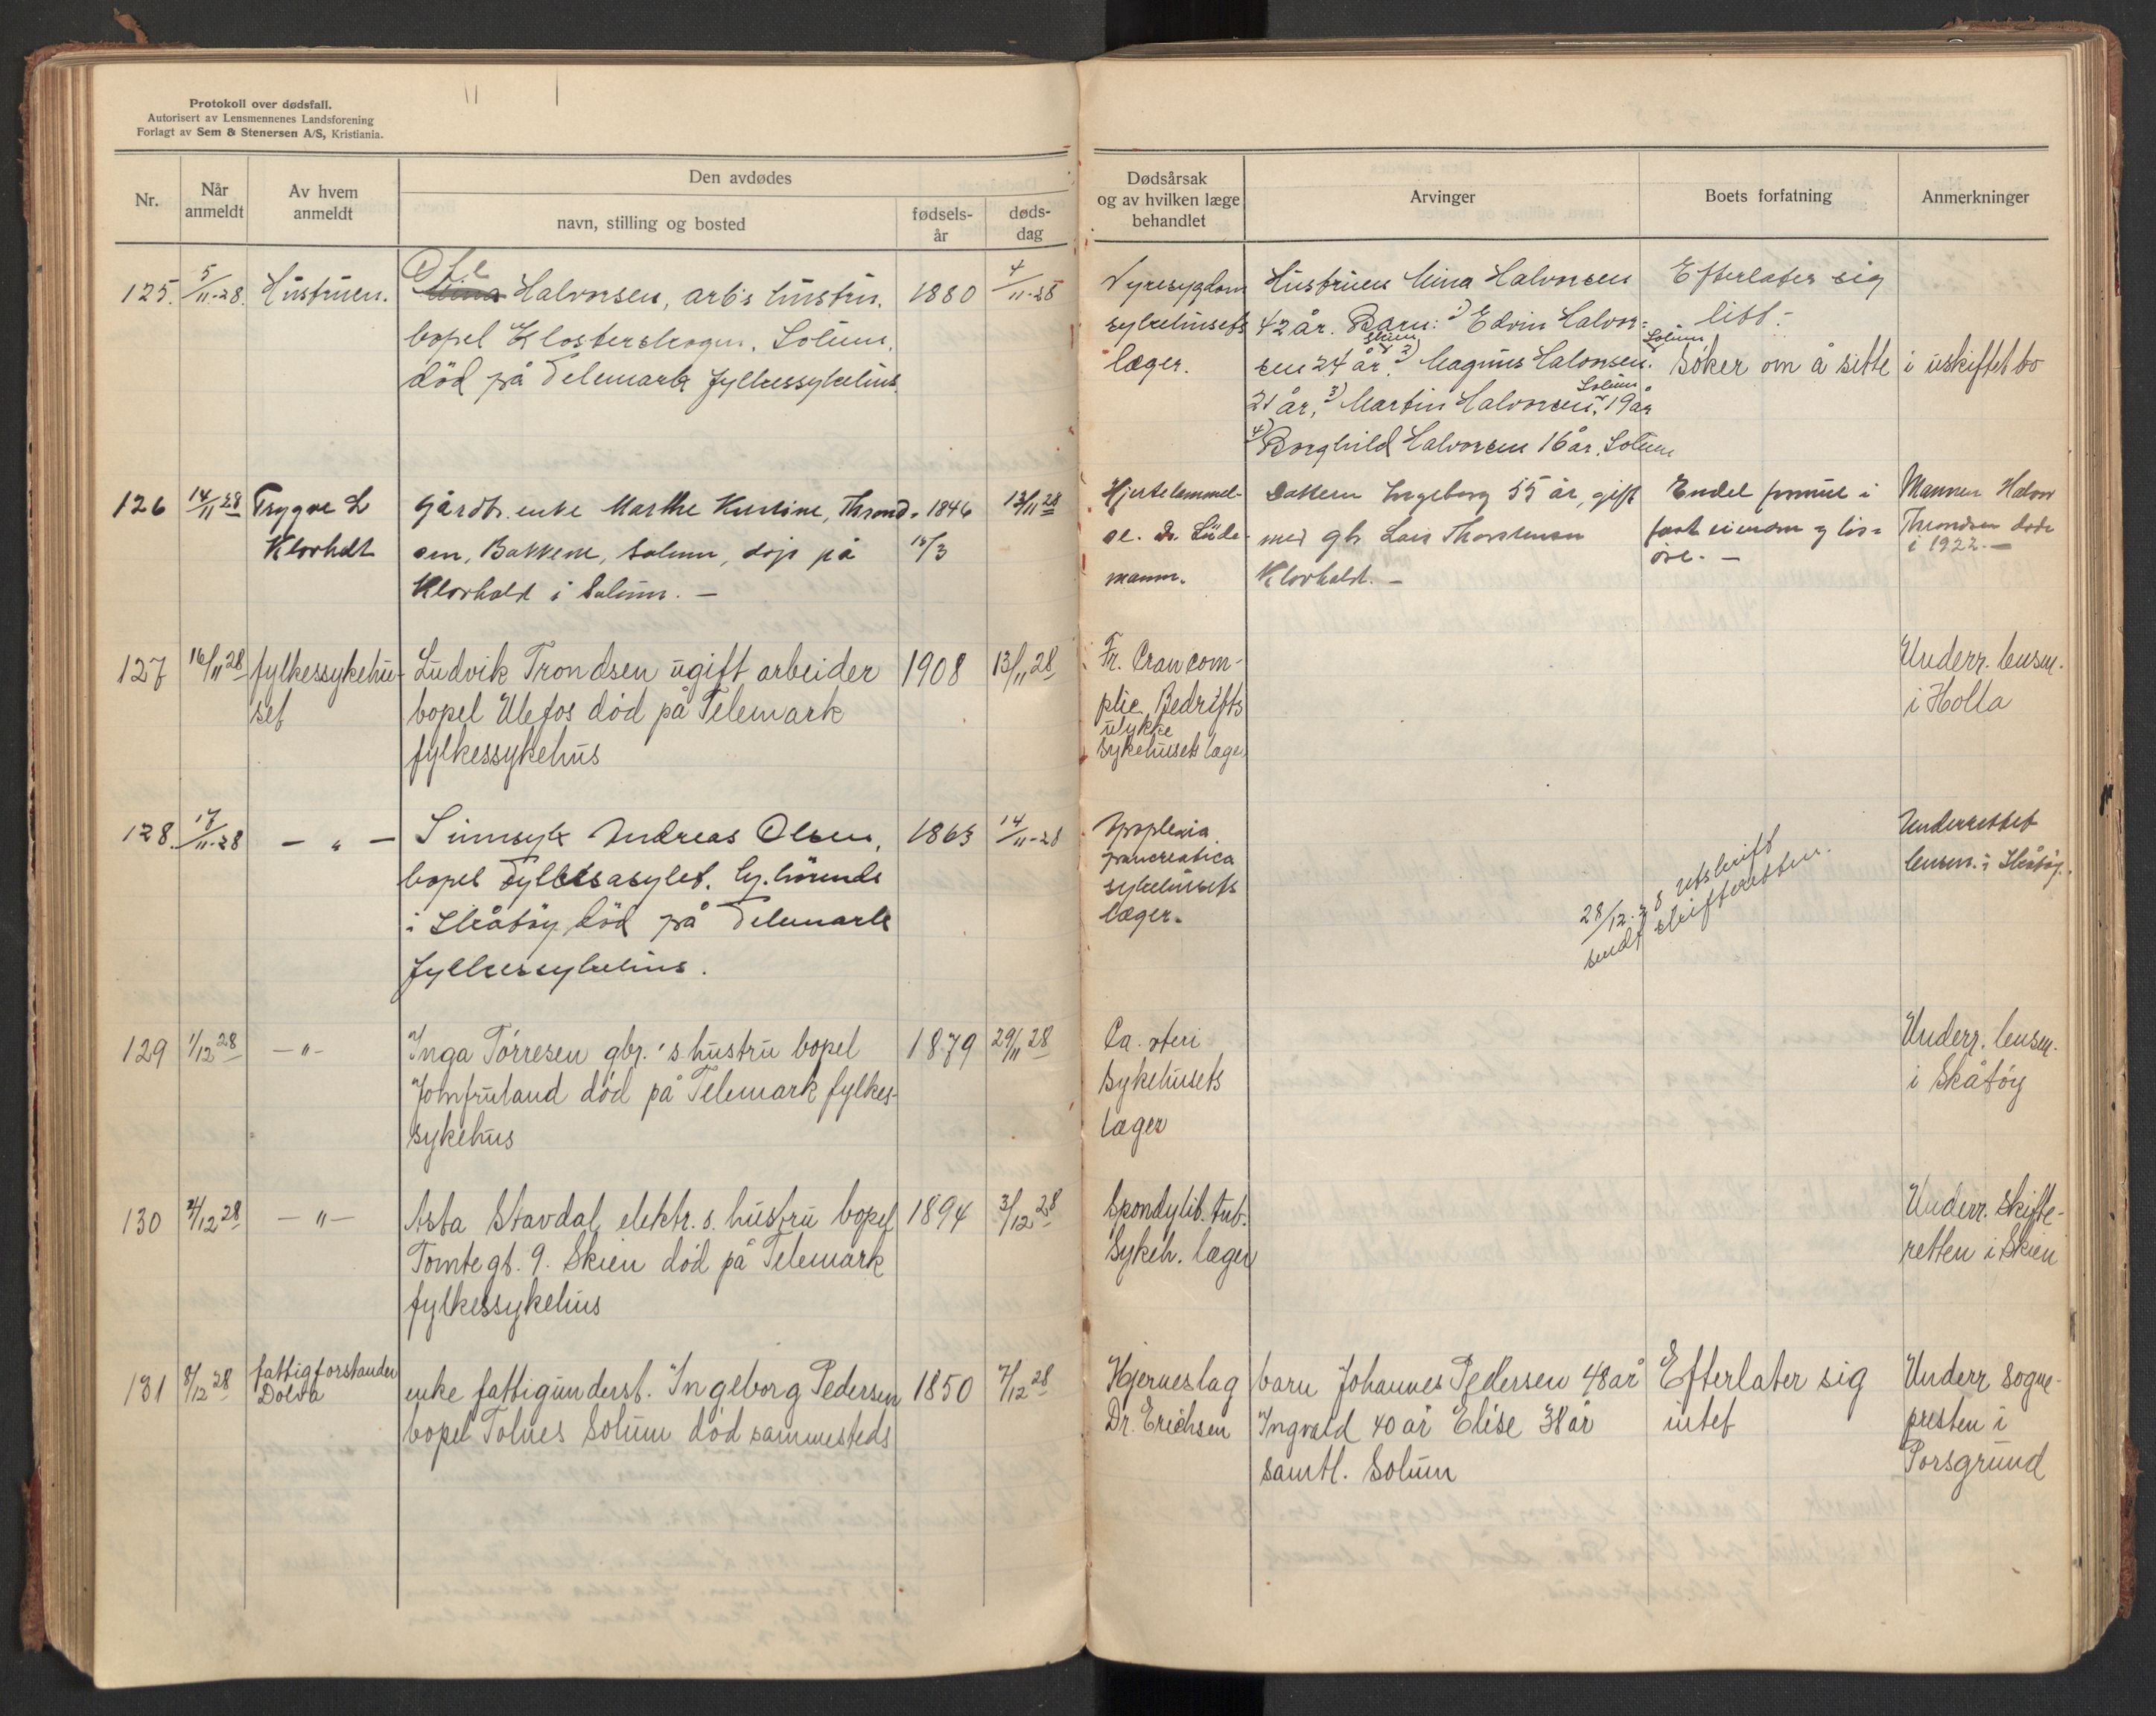 Protokoll over dødsfall.
Autorisert av Lensmennenes Landsforening
Forlagt av Sem & Stenersen A/S, Kristiania.
Nr.
Når anmeldt
Av hvem anmeldt
Den avdødes
navn, stilling og bosted
fødsels-år
døds-dag
Dødsårsak og av hvilken læge behandlet
Arvinger
Boets forfatning
Anmerkninger
125. 5/11-28. Hustruen.
Ole
Mina Halvorsen, arb's hustru. 1880 4/11-28
bopel Klosterskogen, Solum,
død på Telemark fylkessykehus.
Nyresygdom
sykehusets
læger.
Hustruen Mina Halvorsen
42 år. Barn: 1) Edvin Halvor-
sen 24 år, Skien 2) Magnus Halvorsen, Solum
21 år, 3) Martin Halvorsen, Solum 19 år
4) Borghild Halvorsen 16 år, Solum
Efterlater sig
litt.-
Søker om å sitte i uskiftet bo
126 14/11 28 Trygve L
Klovholt
Gårdbr. enke Marthe Kirstine, Thrond- 1846 13/11 28
sen, Bakkene, Solum, døje på 15/3
Klovholt i Solum. -
Hjertelammel-
se. Dr. Lüde-
mann.
Datteren Ingeborg 55 år, gift
med gb. Lars Thorstensen
Klovholt. -
Endel formue i
fast eiendom og løs-
øre. -
Mannen Halvor
Throndsen døde
i 1922. -
127 16/11 28 fylkessykehu-
set
Ludvik Trondsen ugift arbeider 1908 13/11 28
bopel Ulefos død på Telemark
fylkessykehus
Fr. Cran com-
plic. Bedrifts
ulykke
Sykehusets læger
Underr. lensm.
i Holla
128. 17/11-28 - " -
Sinnsyk Andreas Olsen, 1863 14/11-28
bopel Fylkesasylet. hj. hørende
i Skåtøy død på Telemark
fylkessykehus.
Apoplexia
pancreatica
sykehusets
læger.
28/12-28 utskrift
sendt skifteretten.
Underrettet
lensm. i Skåtøy.
129 1/12 28 - " -
Inga Tørresen gbr.'s hustru bopel 1879 29/11 28
Jomfruland død på Telemark fylkes-
sykehus
Ca. uteri
Sykehusets
læger
Underr. lensm.
i Skåtøy
130 4/12 28 - " -
Asta Stavdal elektr.s. hustru bopel 1894 3/12 28
Tomtegt. 9. Skien død på Telemark
fylkessykehus
Spondylit. tub.
Sykeh. læger
Underr. Skifte-
retten i Skien
131 8/12 28 fattigforstander
Dolva
enke fattigunderst. Ingeborg Pedersen 1850 7/12 28
bopel Tolnes Solum død sammesteds
Hjerneslag
Dr. Erichsen
barn Johannes Pedersen 48 år
Ingvald 40 år Elise 38 år
samtl. Solum
Efterlater sig
intet
Underr sogne-
presten i
Porsgrund